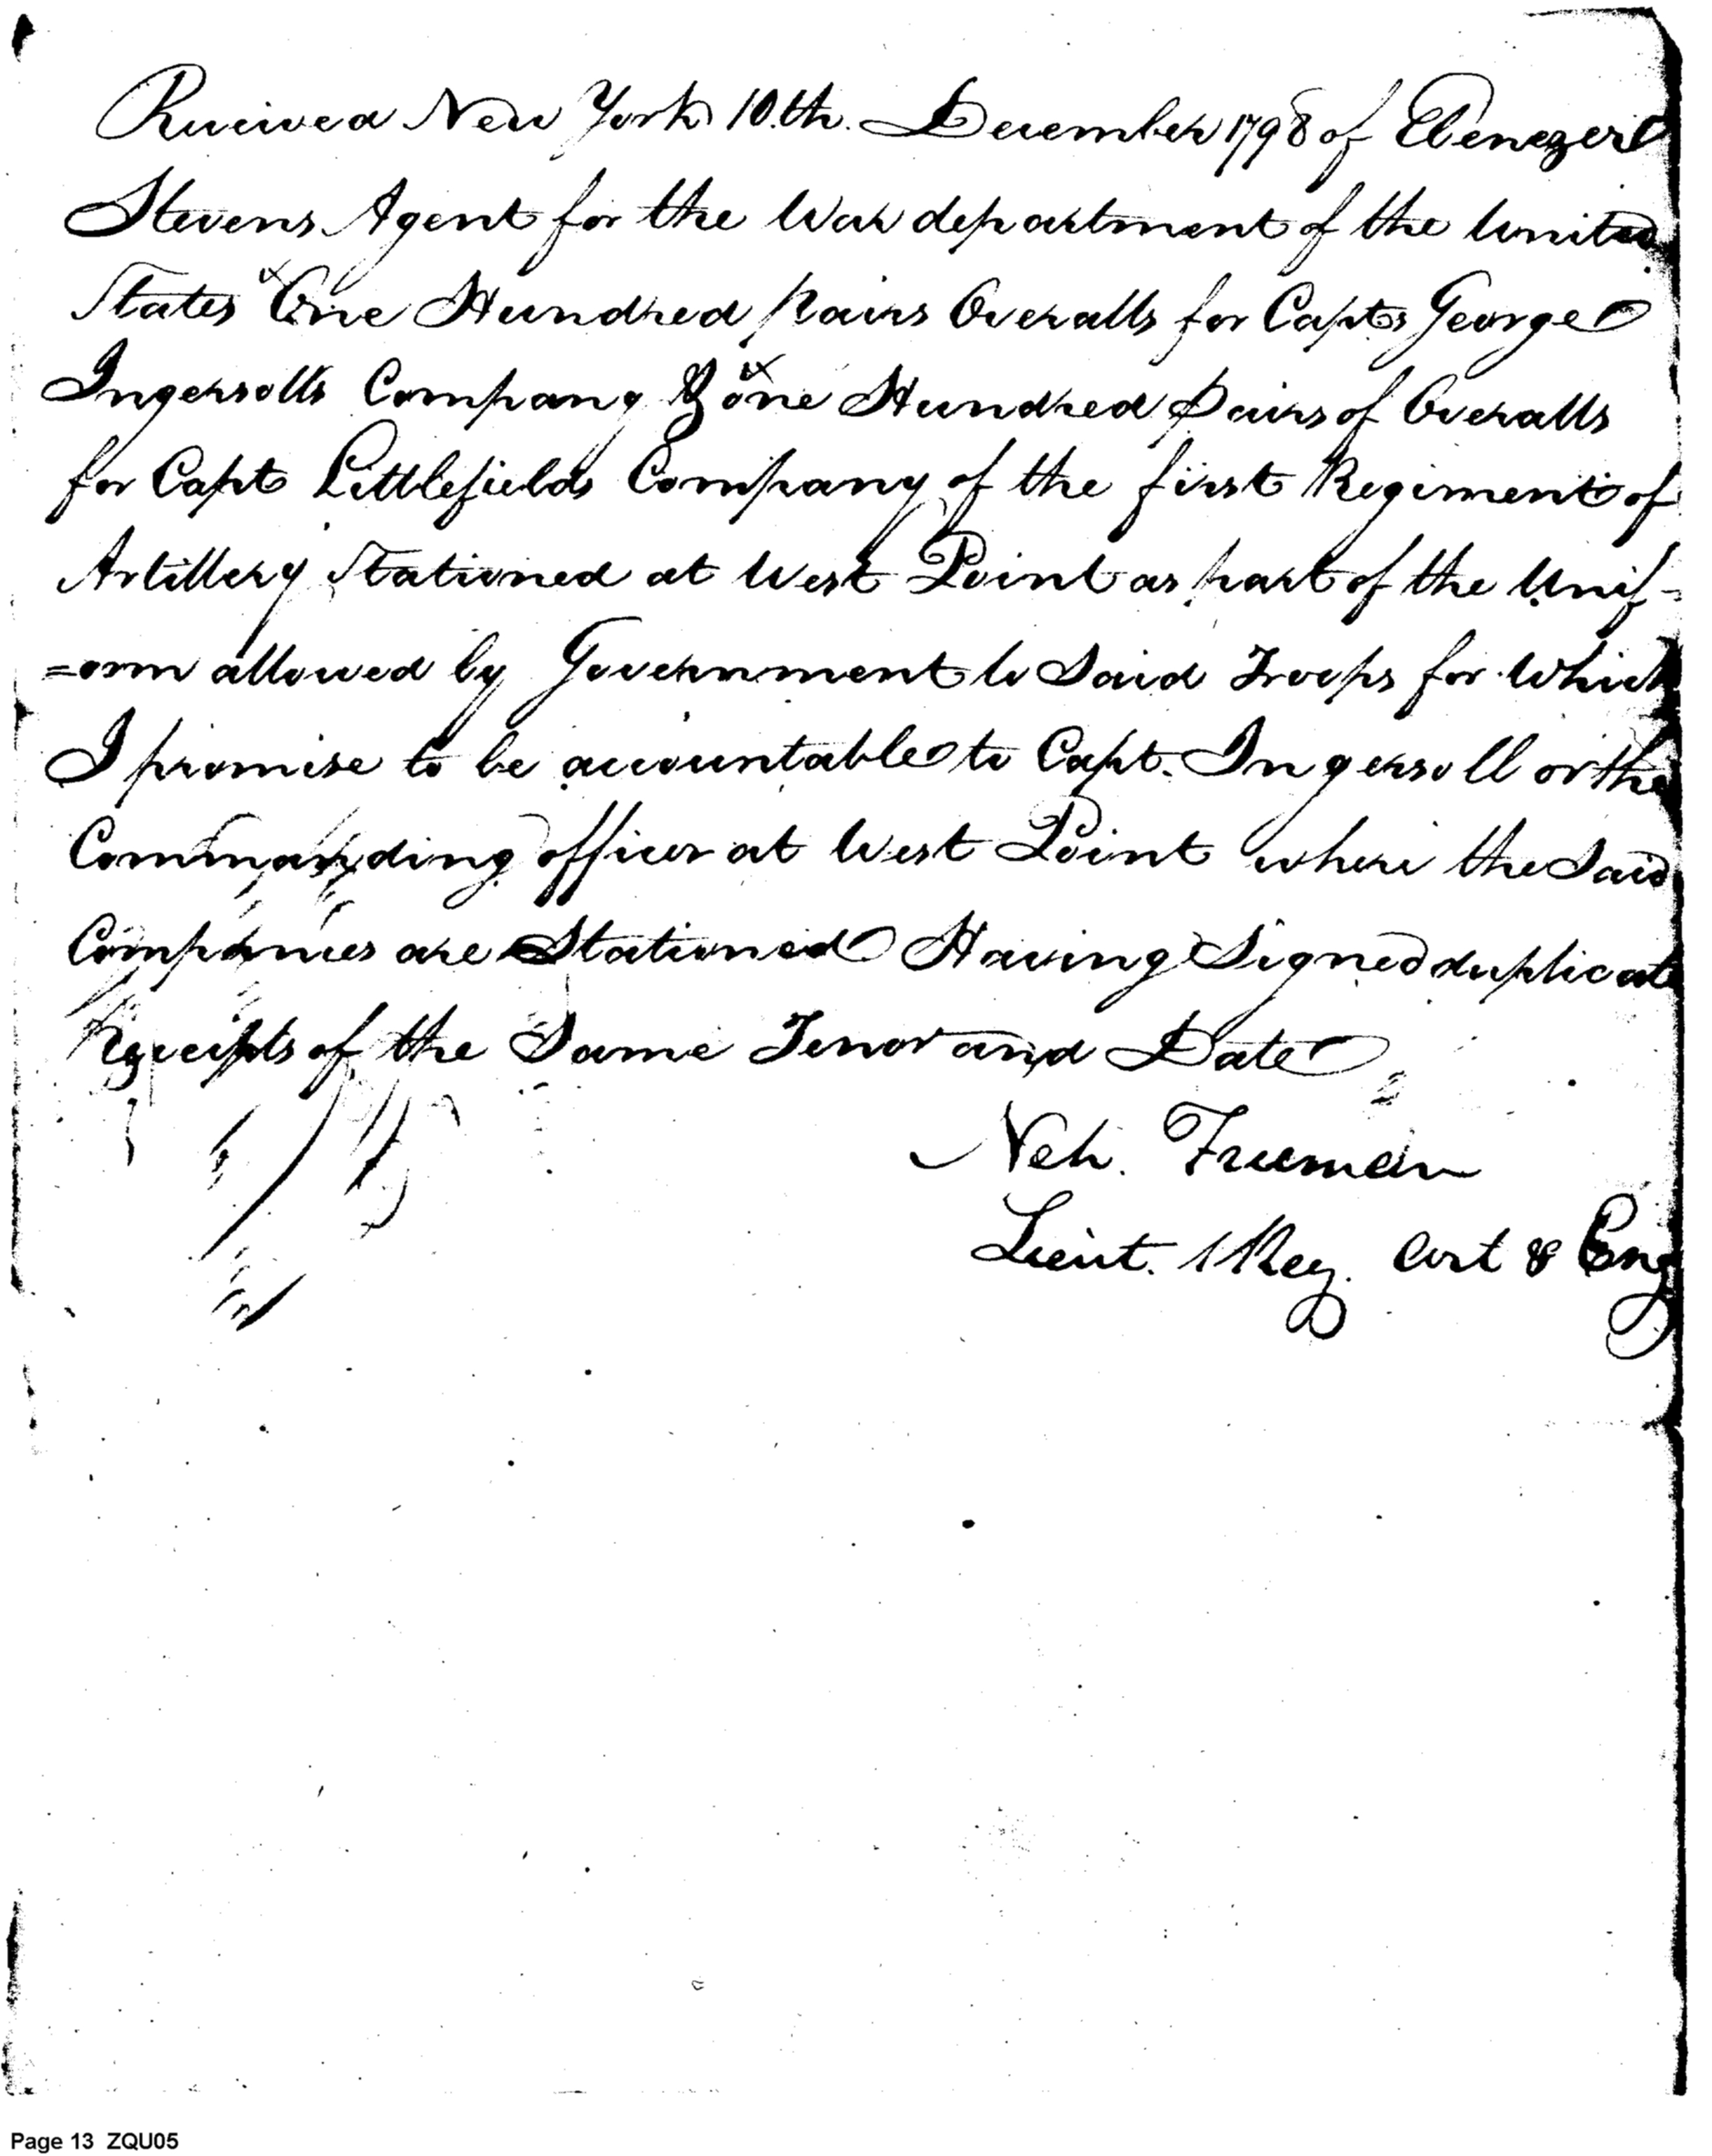 Received New York 10.th. December 1798 of Ebenezer
Stevens Agent for the War department of the United
States One Hundred pairs Overalls for Capts George
Ingersolls Company & one Hundred Pairs of Overalls
for Capt Littlefields Company of the first Regiment of
Artillery Stationed at West Point as part of the Unif-
=orm allowed by Government to Said Troops for which
I promise to be accountable to Capt. Ingersoll or the
Commanding officer at West Point where the Said
Companies are Stationed Having Signed duplicate
Receipts of the Same Tenor and Date
Neh. Freeman
Lieut. 1 Reg. Art & Eng
Page 13 ZQU05